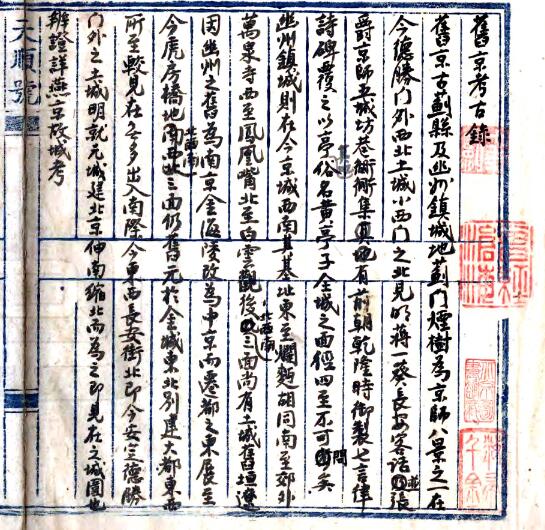 舊京考古錄
舊京古薊縣及幽州鎮城地薊門煙樹為京師八景之一在
今德勝門外西北土城小西門之北見明蔣一葵長安客話並張
爵京師五城坊巷衚衕集其地有前朝乾隆時御製七言律
詩碑覆之以亭俗名黃亭子全城之面徑四至不可問矣
幽州鎮城則在今京城西南其基址東至爛麪胡同南至郊外
萬泉寺西至鳳凰嘴北至白雲觀後北西南三面尚有土城舊垣遼
因幽州之舊為南京金海陵改為中京南遷都之東展至
今虎房橋地北西南三面仍舊元於金城東北別建大都東西
所至較見在無多出入南際今東西長安街北即今安定德勝
門外之土城明就元城建北京伸南縮北而為之即見在之城圍也
辨證詳燕京故城考
天順號